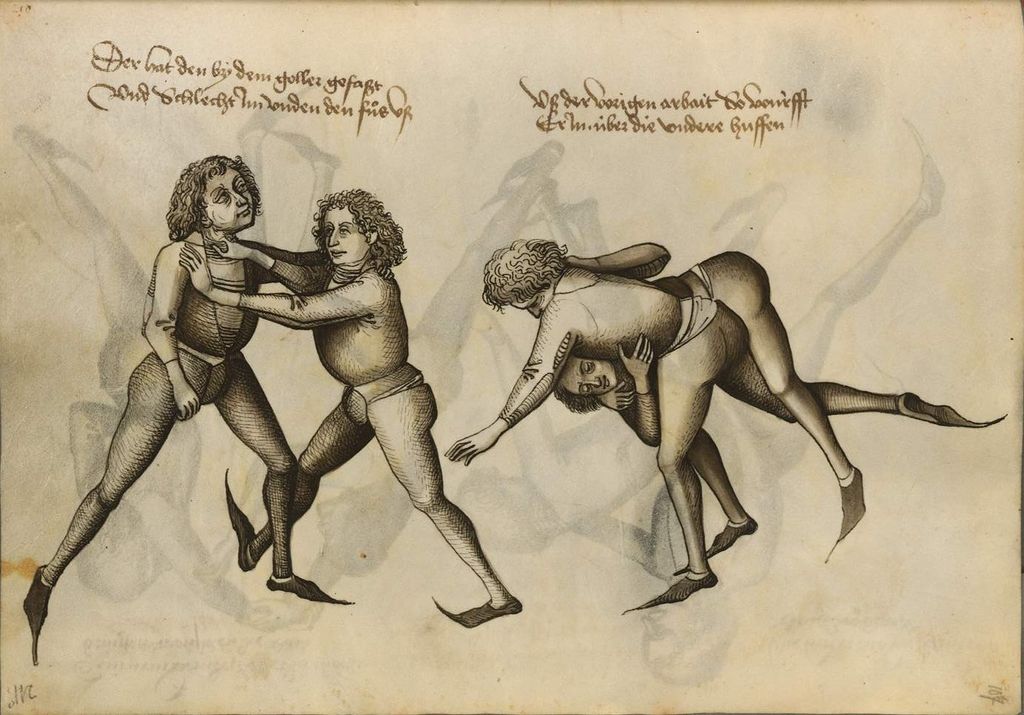 Der hat den by dem goller gefaßt
Und Schlecht Im unden den fůs uß
Uß der vorigen arbait So würfft
Er In über die undere huffen